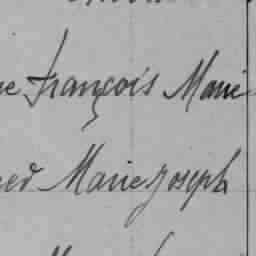 François Marie
Marie Joseph